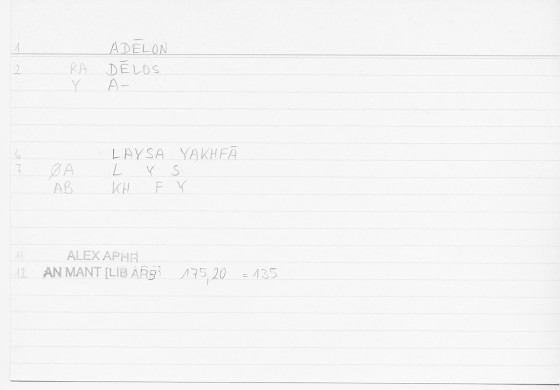 1 ADĒLON
2 RA DĒLOS
Y A-
6 LAYSA YAKHFĀ
7 ØA L Y S
AB KH F Y
11 ALEX APHR
12 AN MANT [LIB ARB] 175,20 = 135